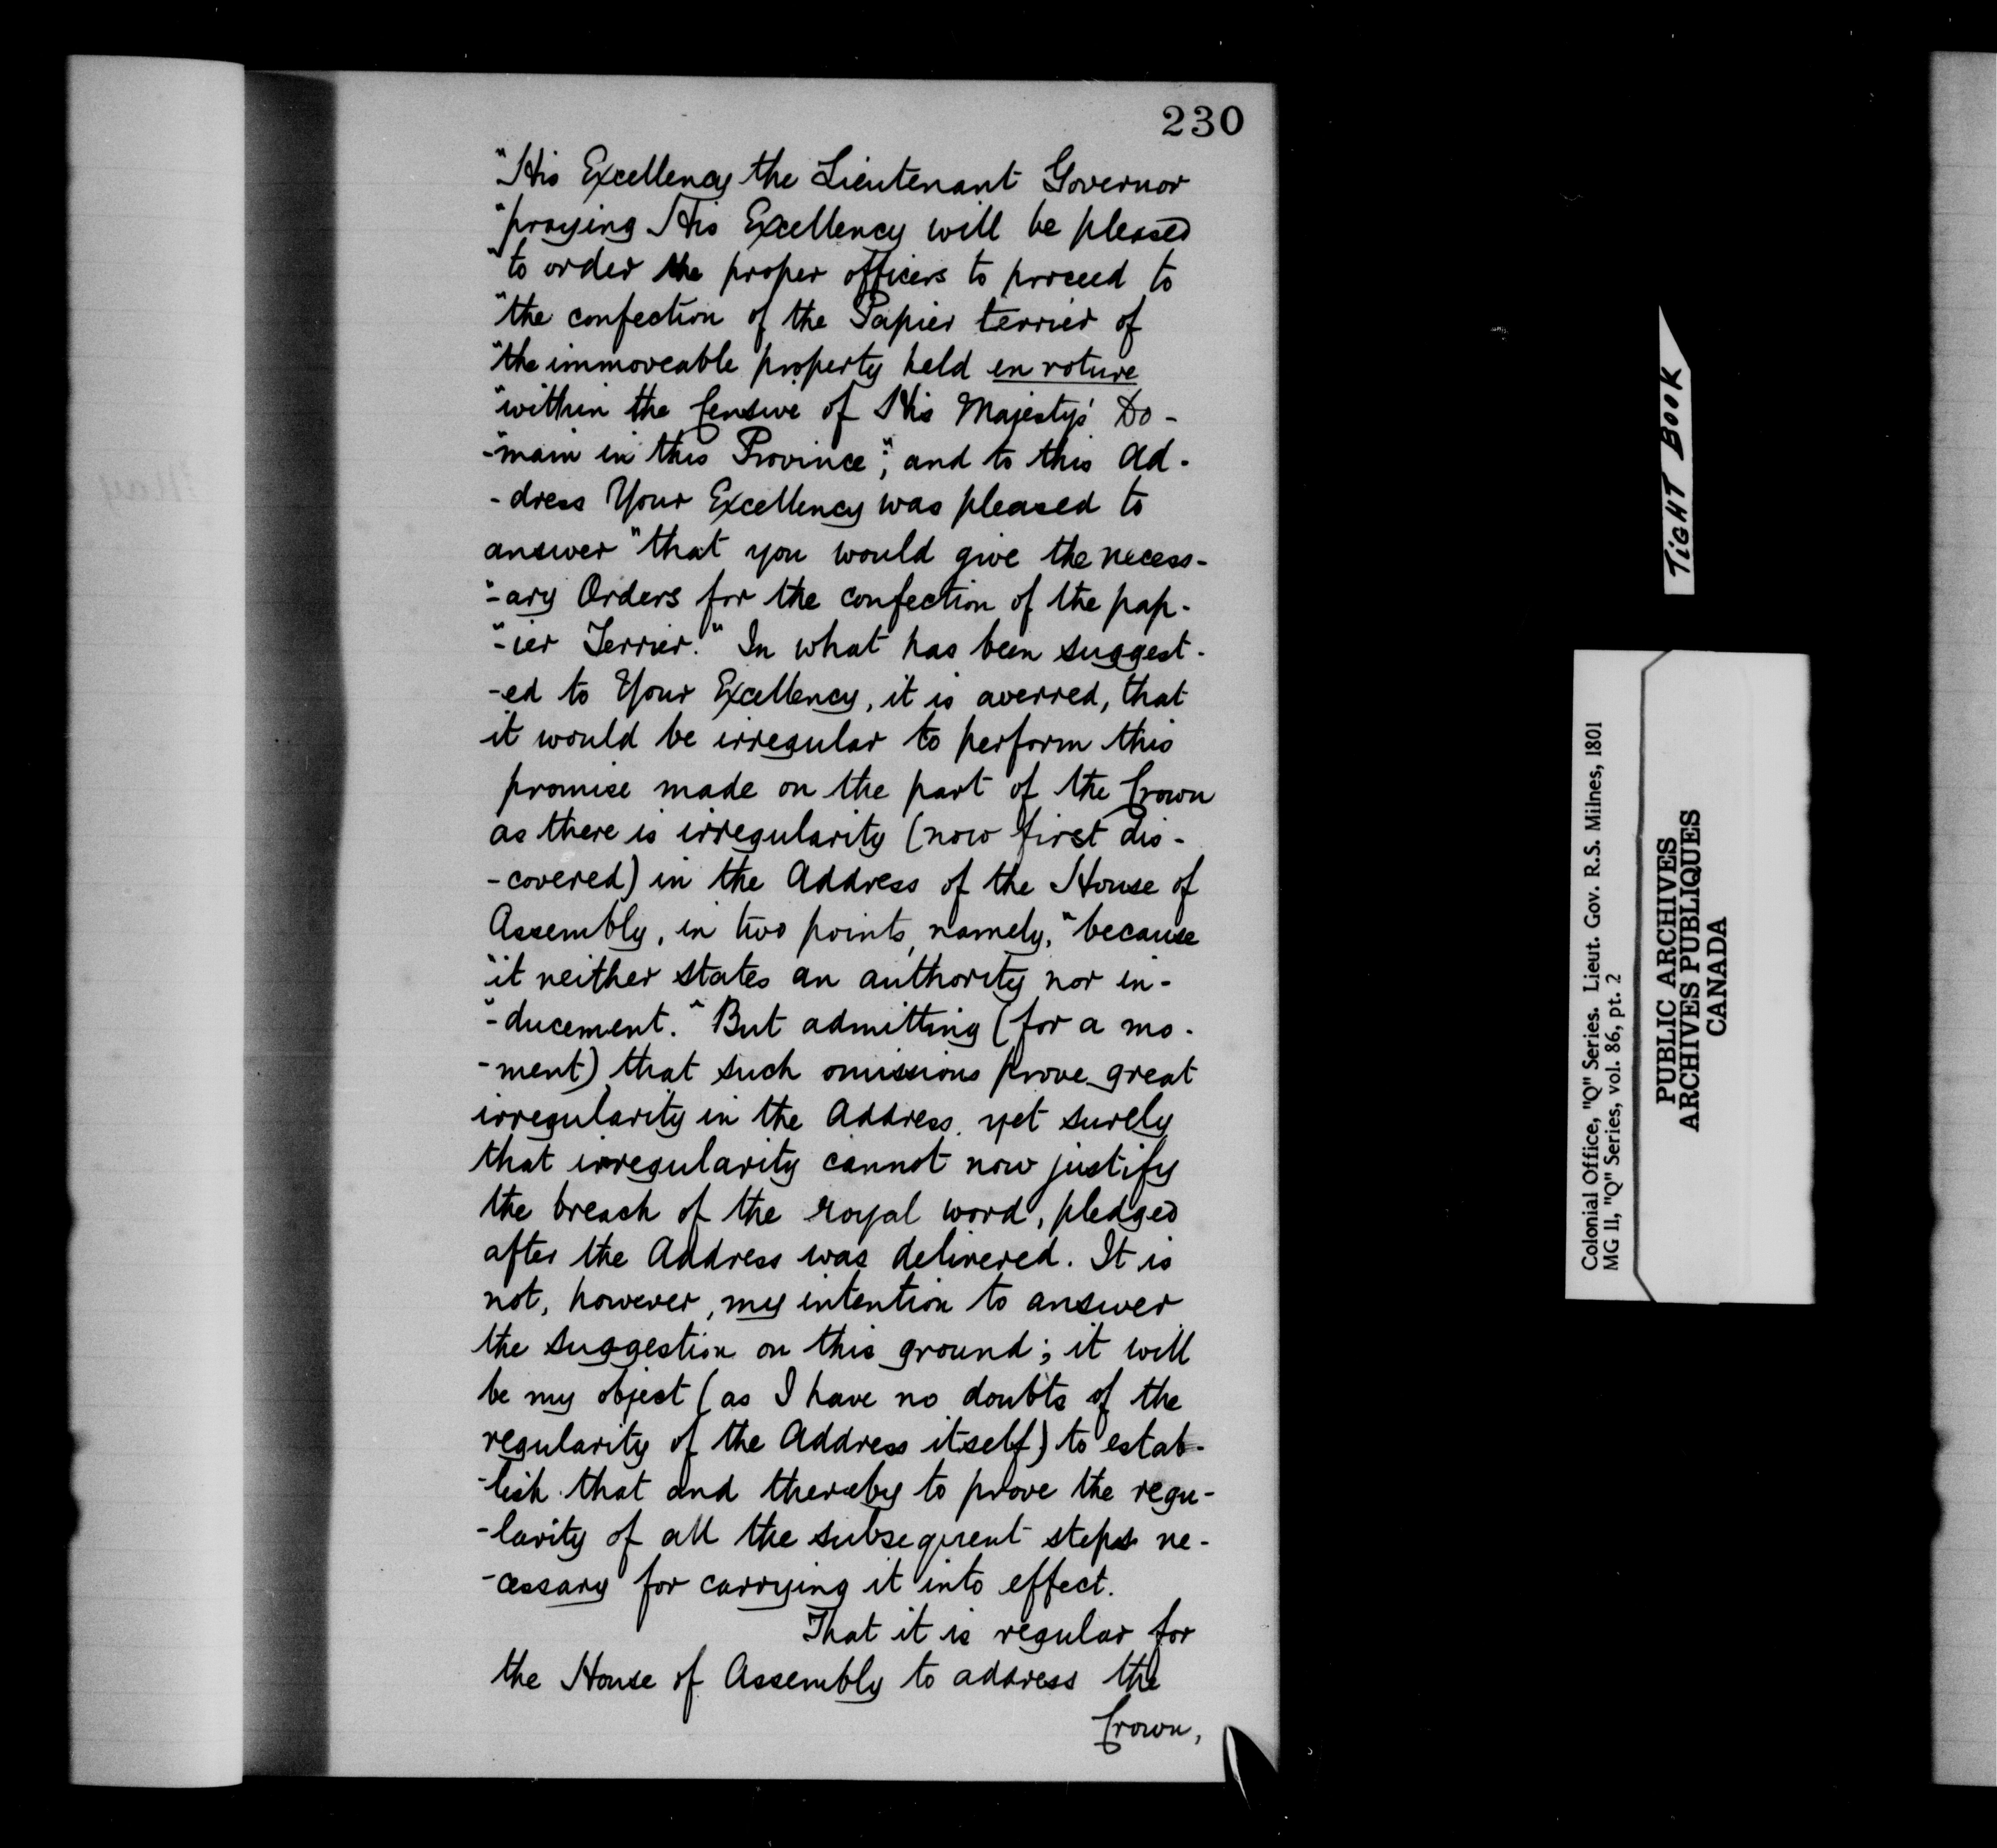 230
"His Excellency the Lieutenant Governor
"praying His Excellency will be pleased
"to order the proper officers to proceed to
"the confection of the Papier terrier of
"the immoveable property held en roture
"within the Censive of His Majesty's Do-
"-main in this Province"; and to this Ad-
-dress Your Excellency was pleased to
answer "that you would give the necess-
"-ary Orders for the confection of the pap-
"-ier Terrier." In what has been suggest-
-ed to Your Excellency, it is averred, that
it would be irregular to perform this
promise made on the part of the Crown
as there is irregularity (now first dis-
-covered) in the Address of the House of
Assembly, in two points, namely, "because
"it neither states an authority nor in-
"-ducement." But admitting (for a mo-
-ment) that such omissions prove great
irregularity in the Address, yet surely
that irregularity cannot now justify
the breach of the royal word, pledged
after the Address was delivered. It is
not, however, my intention to answer
the suggestion on this ground; it will
be my object (as I have no doubts of the
regularity of the Address itself) to estab-
-lish that and thereby to prove the regu-
-larity of all the subsequent steps ne-
-cessary for carrying it into effect.
That it is regular for
the House of Assembly to address the
Crown,
TIGHT BOOK
Colonial Office, "Q" Series. Lieut. Gov. R.S. Milnes, 1801
MG 11, "Q" Series, vol. 86, pt. 2
PUBLIC ARCHIVES
ARCHIVES PUBLIQUES
CANADA